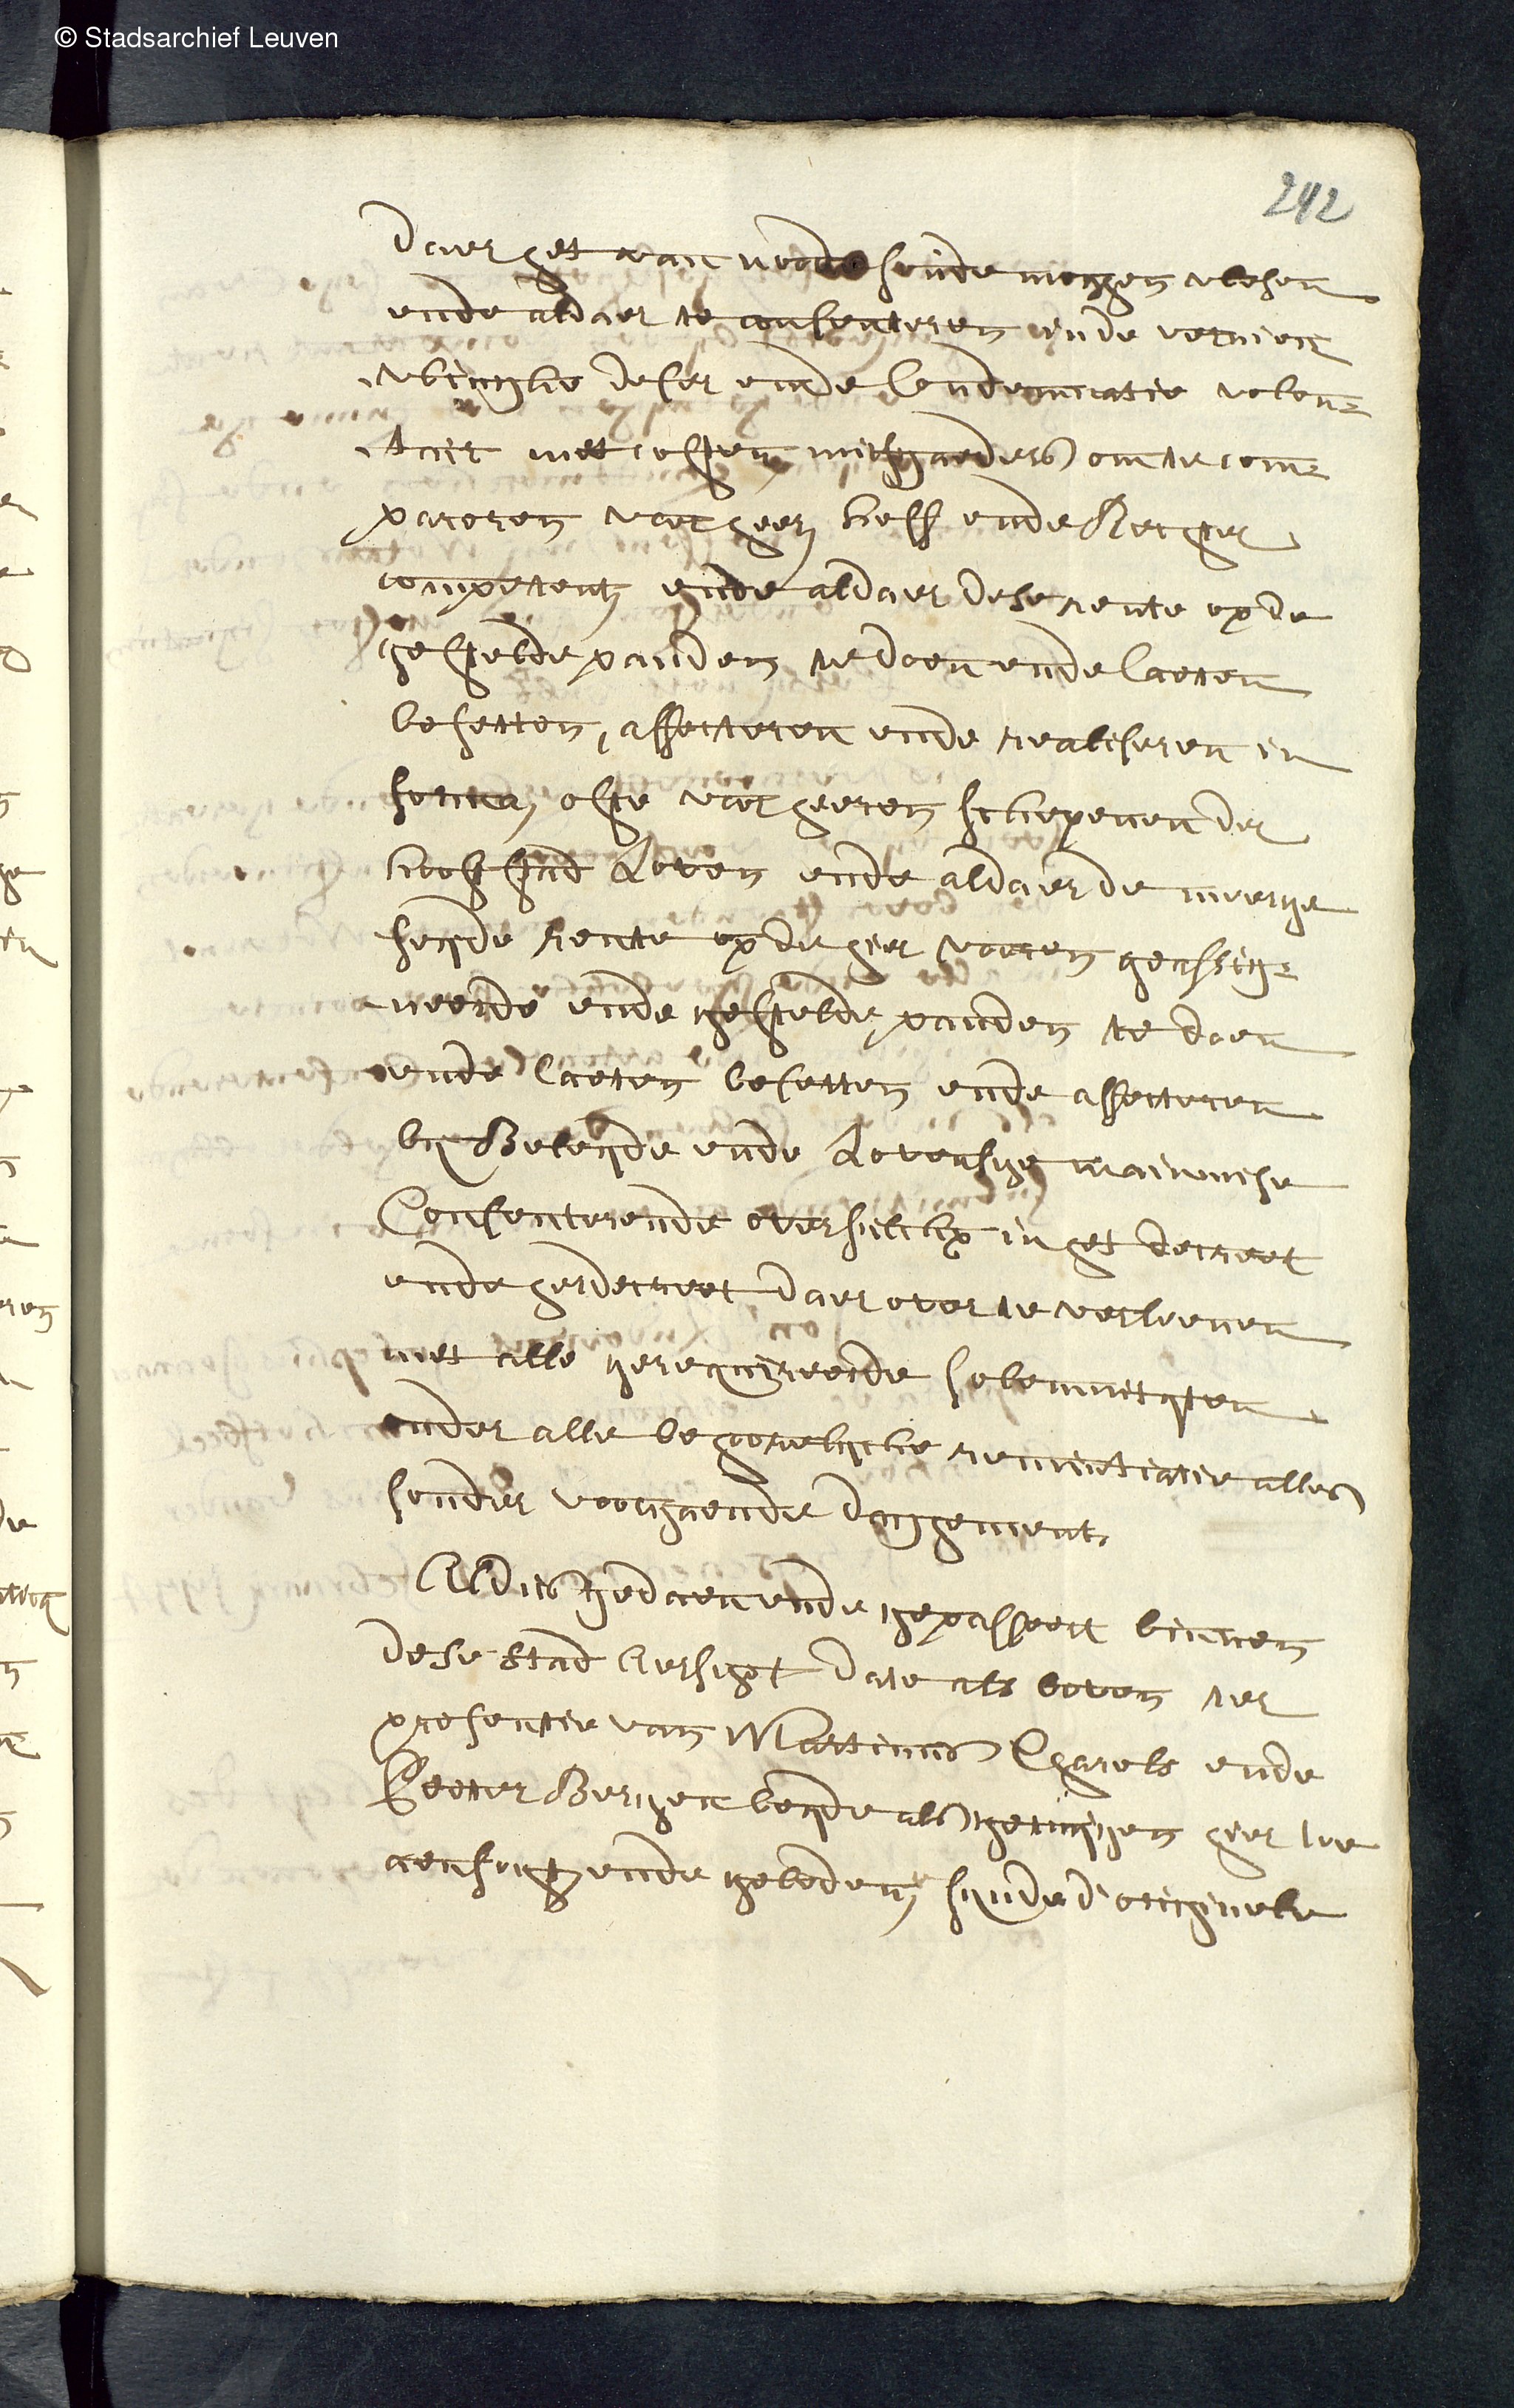 © Stadsarchief Leuven
242
daer het van noode sijnde mogen wesen
ende aldaer te consenteren inde vernieu
wlinghe deser ende condemnatie volon=
tair met costen mitsgaeders om te com=
pareren voor heer hoff ende Rechter
competent ende aldaer dese rente op de
gestelde panden te doen ende laeten
besetten, affecteren ende realiseren in
forma, ofte voor heeren schepenen der
hooftstad Loven ende aldaer de meerge
seyde rente op de hier voren geassig=
neerde ende gestelde panden te doen
ende laeten besetten ende affecteren
by Beleyde ende Lovensche mainmise
Consenterende oversulckx in het decreet
ende herdecreet daer over te verleenen
met alle gerequireerde solemniteyten
onder alle behoorelycke renuntiatie alles
sonder voorgaende daggement,
Aldus gedaen ende gepasseert binnen
dese stad Aerschot date als boven ter
presentie van Martinus Charels ende
Peeter Bergen beyde als getuygen hier toe
aensocht ende gebeden, synde d'originele